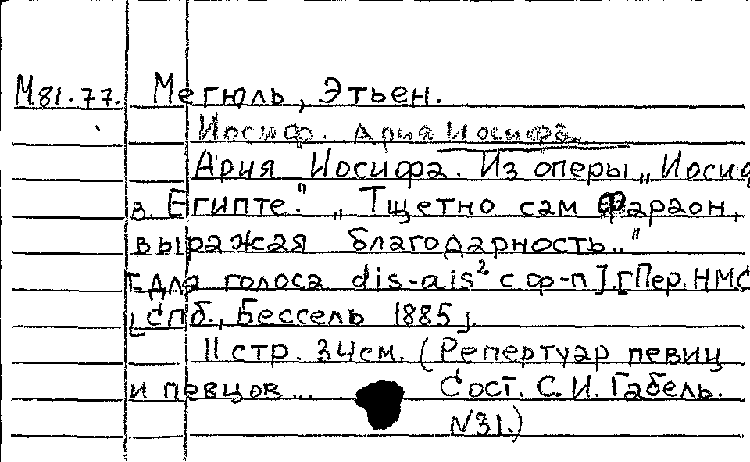 М81.77. Мегюль, Этьен.
Иосиф. Ария Иосифа.
Ария Иосифа. Из оперы „Иосиф
в Египте." „Тщетно сам Фараон,
выражая благодарность.."
[Для голоса dis-ais² с ф-п].[Пер. НМС
[СПб., Бессель 1885].
11 стр. 34 см. (Репертуар певиц
и певцов... Сост. С. И. Габель.
N31.)